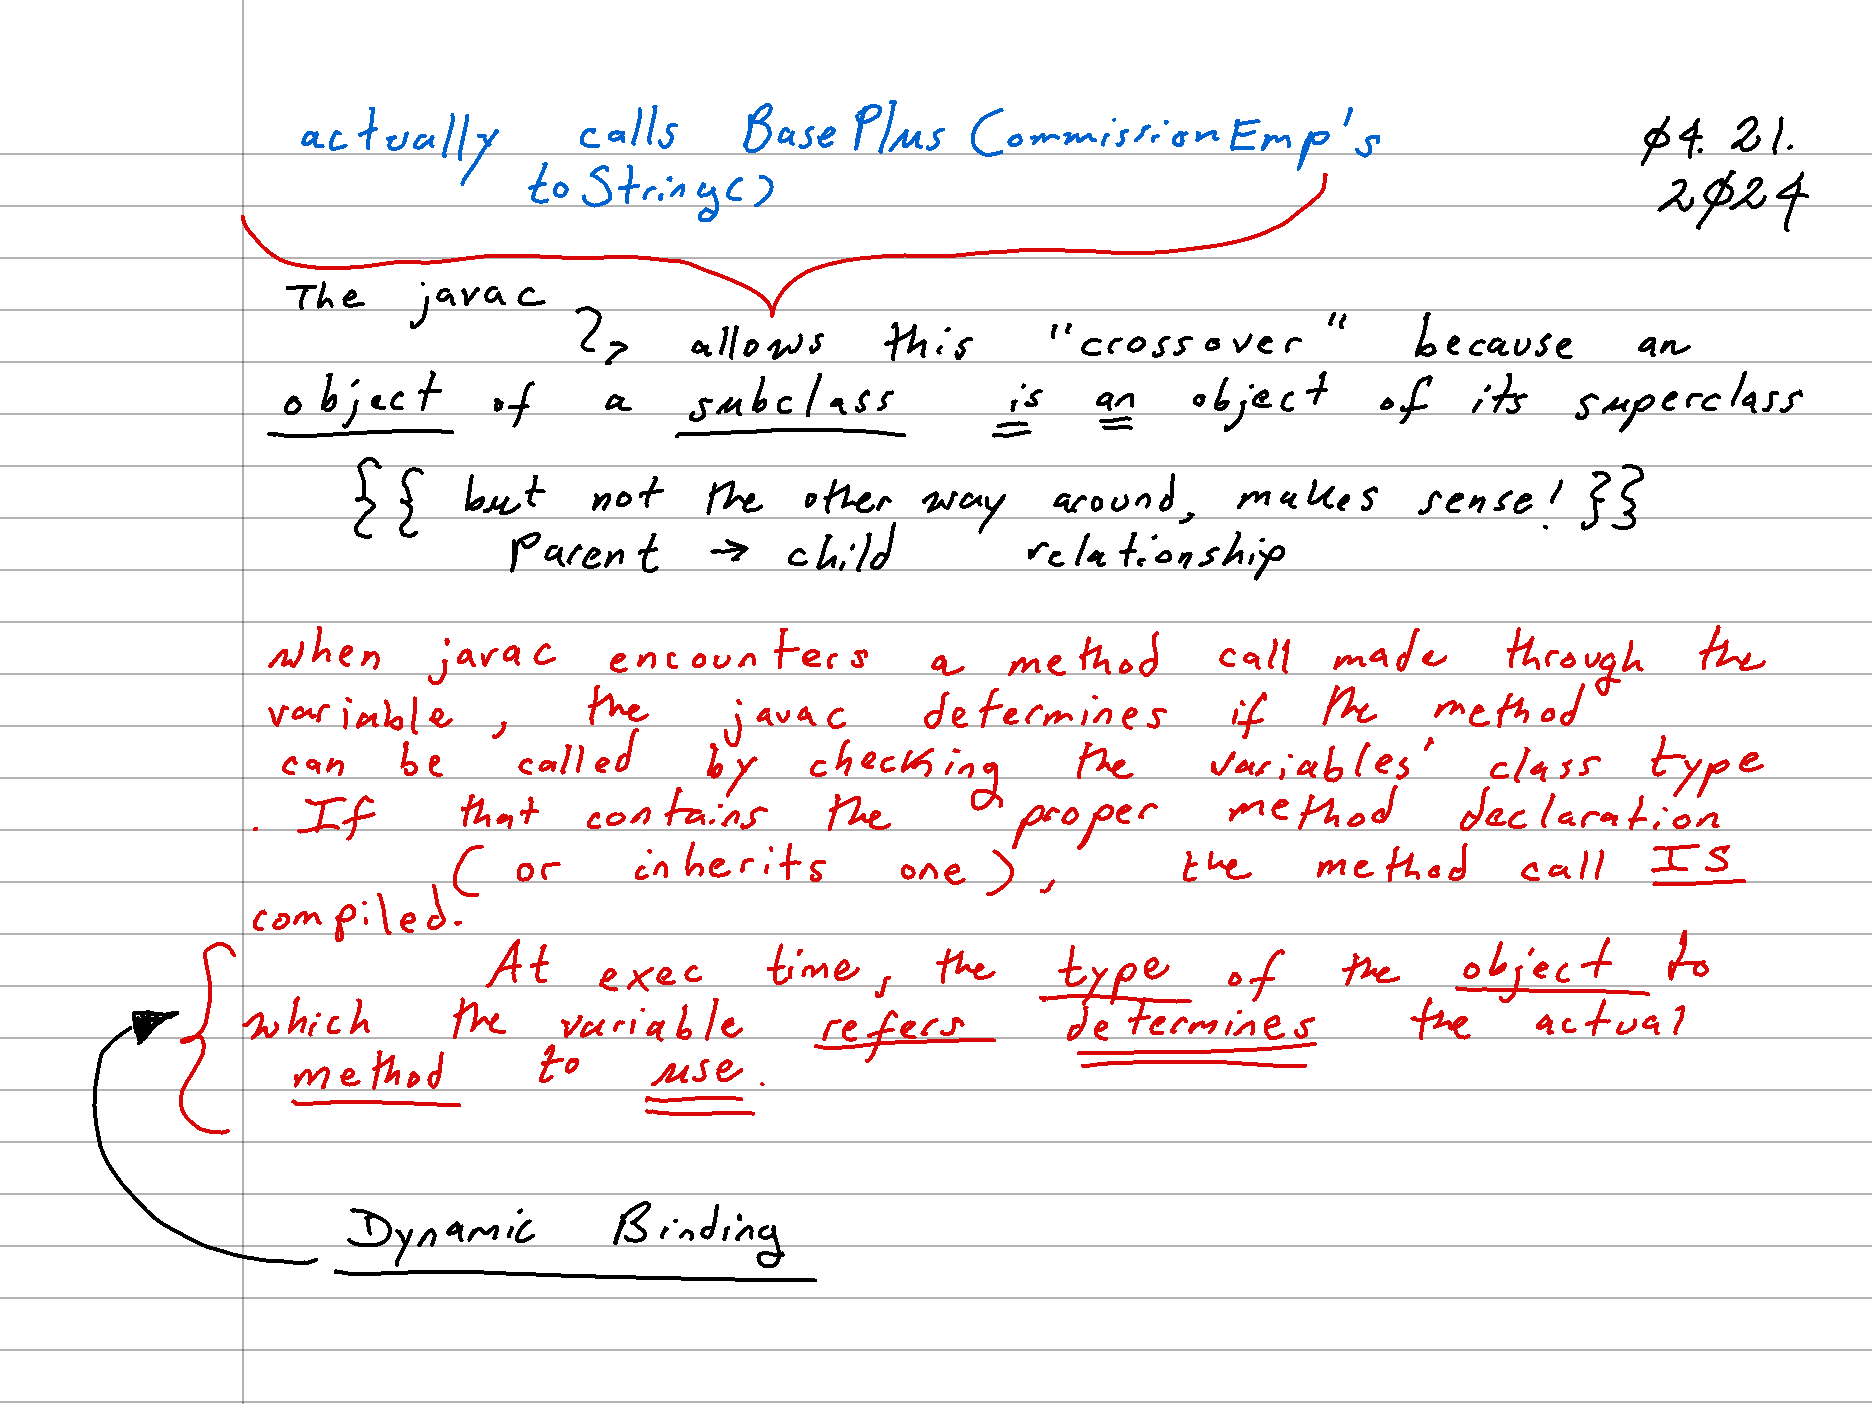 actually calls BasePlusCommissionEmp's
toString()
04. 21.
2024
The javac
allows this "crossover" because an
object of a subclass is an object of its superclass
{{ but not the other way around, makes sense! }}
Parent → child relationship
when javac encounters a method call made through the
variable, the javac determines if the method
can be called by checking the variables' class type
. If that contains the proper method declaration
(or inherits one), the method call IS
compiled.
At exec time, the type of the object to
which the variable refers determines the actual
method to use.
Dynamic Binding